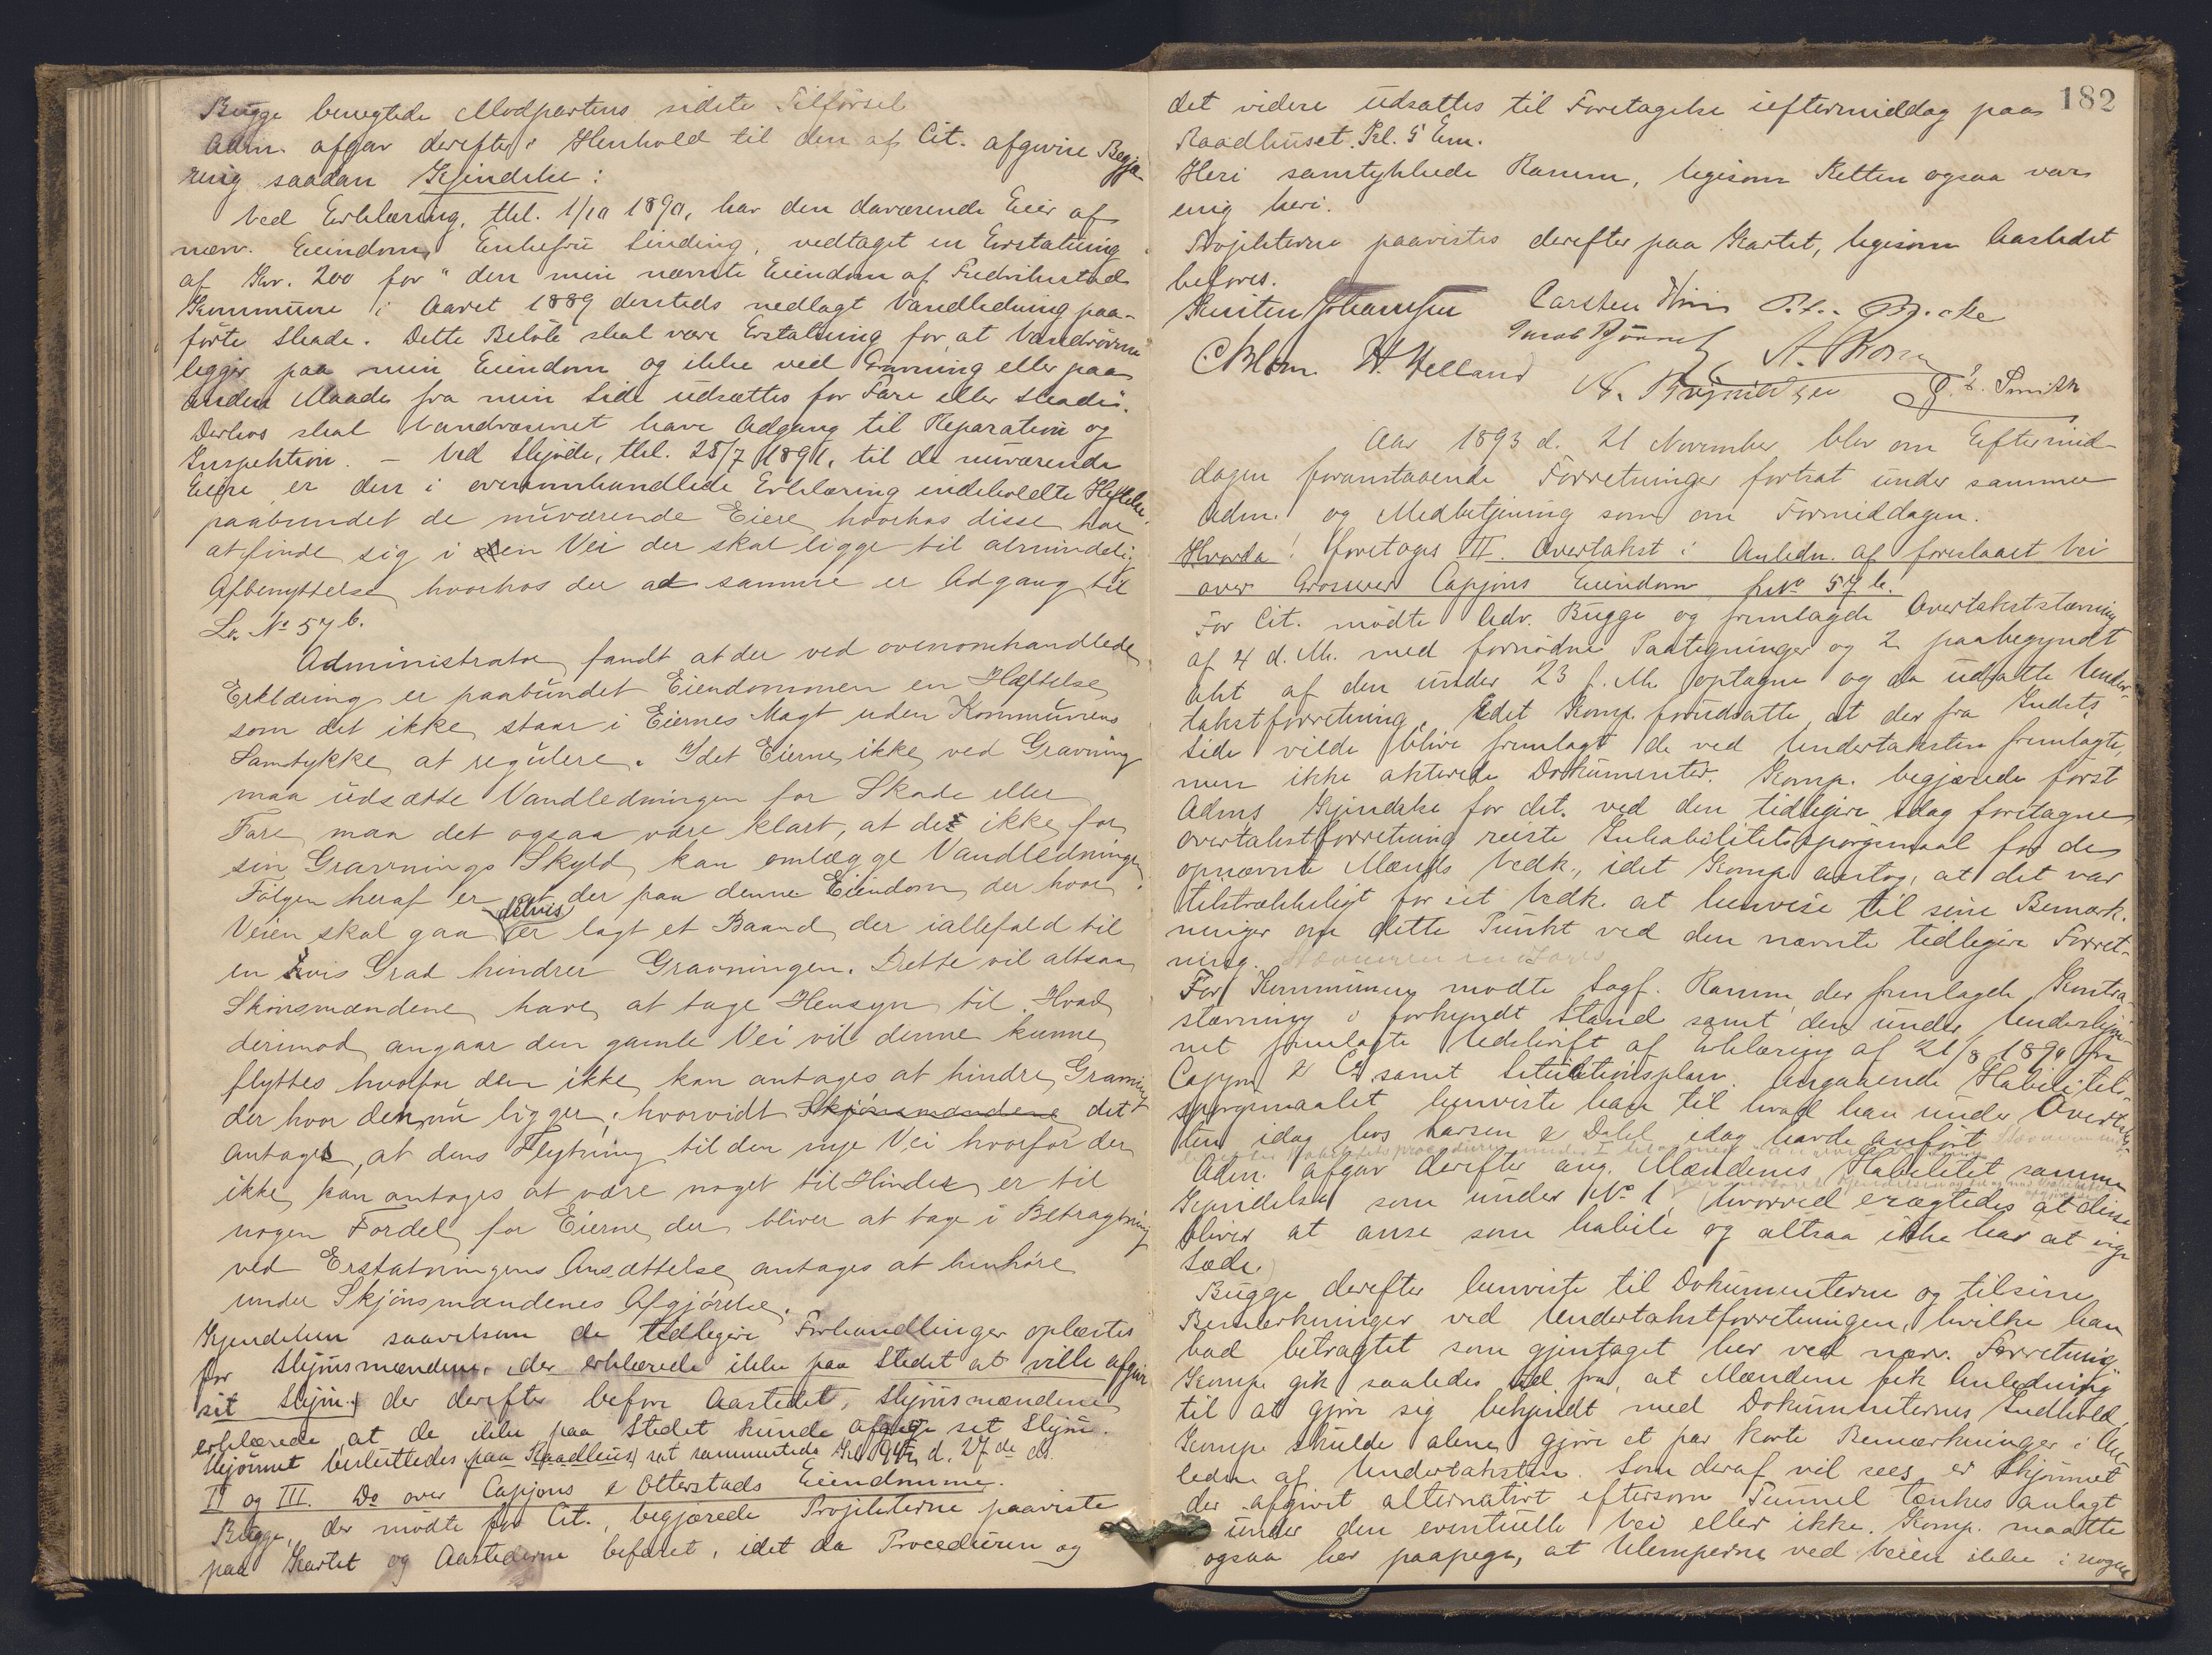 Bugge benegtede Modpartens sidste Tilførsel
Adm. afgav derefter i Henhold til den af Cit. afgivne Begjæ-
ring saadan Kjendelse:
Ved Erklæring, thl. 1/10 1890, har den daværende Eier af
nærv. Eiendom, Enkefru Sinding, vedtaget en Erstatning
af Kr. 200 for "den min nævnte Eiendom af Fredrikstad
Kommune i Aaret 1889 dersteds nedlagt Vandledning paa-
førte Skade. Dette Beløb skal være Erstatning for, at Vandrørene
ligger paa min Eiendom og ikke ved Gravning eller paa
anden Maade fra min Side udsættes for Fare eller Skade.
Derhos skal Vandvæsenet have Adgang til Reparation og
Inspektion. – Ved Skjøde, thl. 25/7 1891, til de nuværende
Eiere er den i ovenomhandlede Erklæring indeholdte Heftelse
paabundet de nuværende Eiere, hvorhos disse har
at finde sig i en Vei der skal ligge til almindelig
Afbenyttelse hvorhos der ad samme er Adgang til
L. No 57 b.
Administrator fandt at der ved ovenomhandlede
Erklæring er paabundet Eiendommen en Hæftelse
som det ikke staar i Eiernes Magt uden Kommunens
Samtykke at regulere. Idet Eierne ikke ved Gravning
maa udsætte Vandledningen for Skade eller
Fare, maa det ogsaa være klart, at de ikke for
sin Gravnings Skyld kan omlægge Vandledningen.
Følgen heraf er at der paa denne Eiendom der hvor
Veien skal gaa delvis er lagt et Baand, der iallefald til
en vis Grad hindrer Gravningen. Dette vil altsaa
Skjønsmændene have at tage Hensyn til. Hvad
derimod angaar den gamle Vei vil denne kunne
flyttes hvorfor den ikke kan antages at hindre Gravning
der hvor den nu ligger; hvorvidt Skjønsmændene det
antages, at dens Flytning til den nye Vei hvorfor der
ikke kan antages at være noget til Hinder, er til
nogen Fordel for Eierne, der bliver at tage i Betragtning
ved Erstatningens Ansættelse, antages at henhøre
under Skjønsmændenes Afgjørelse.
Kjendelsen saavelsom de tidligere Forhandlinger oplæstes
for Skjønsmændene, der erklærede ikke paa Stedet at ville afgive
sit Skjøn. der derefter befor Aastedet. Skjønsmændene
erklærede, at de ikke paa Stedet kunde afgive sit Skjøn.
Skjønnet besluttedes paa Raadhus sat sammesteds d. 27de ds.
II og III. Do over Capjons & Otterstads Eiendomme.
Bugge, der mødte for Cit., begjærede Projekterne paaviste
paa Kartet og Aastederne befaret, idet da Proceduren og
182
det videre udsattes til Foretagelse ieftermiddag paa
Raadhuset Kl. 5 Em.
Heri samtykkede Ramm, ligesom Retten ogsaa var
enig heri.
Projekterne paavistes derefter paa Kartet, ligesom Aastedet
befores.
Carsten
Jacob
H. Helland
Smith
Aar 1893 d. 21 November blev om Eftermid-
dagen foranstaaende Forretninger fortsat under samme
Adm. og Medbetjening som om Formiddagen.
Hvorda: foretoges II. Overtakst i Anledn. af foreslaaet Vei
over Grosserer Capjons Eiendom No 57 b.
For Cit. mødte Adv. Bugge og fremlagde Overtakststævning
af 4 d. M. med fornødne Paategninger og 2 paabegyndt
Akt af den under 23 f. M. optagne og da udsatte Under-
takstforretning. Idet Komp. forudsatte, at der fra Indcits
Side vilde blive fremlagt de ved Undertaksten fremlagte,
men ikke akterede Dokumenter. Komp. begjærede først
Adms Kjendelse for det ved den tidligere idag foretagne
overtakstforretning reiste Inhabilitetsspørgsmaal for de
opnævnte Mænds Vedk., idet Komp. antog, at det var
tilstrækkeligt for sit Vedk. at henvise til sine Bemærk-
ninger om dette Punkt ved den nævnte tidligere Forret-
ning.
For Kommunen mødte Sagf. Ramm, der fremlagde Kontra-
stævning i forkyndt Stand samt den under Underskjøn-
net fremlagte Udskrift af Erklæring af 21/8 1890 fra
Capjon & Co samt Situationsplan. Angaaende Habilitets-
spørgsmaalet henviste han til hvad han under Overtak-
sten idag hos Larsen & Dahl idag havde anført
Adm. afgav derefter ang. Mændenes Habilitet samme
Kjendelse som under No 1, hvorved eragtedes at disse
bliver at anse som habile og altsaa ikke har at vige
Sæde.
Bugge derefter henviste til Dokumenterne og til sine
Bemærkninger ved Undertakstforretningen, hvilke han
bad betragtet som gjentaget her ved nærv. Forretning.
Komp. gik saaledes ud fra, at Mændene fik Anledning
til at gjøre sig bekjendt med Dokumenternes Indhold.
Komp. skulde alene gjøre et par korte Bemærkninger i An-
ledn. af Undertaksten. Som deraf vil sees, er Skjønnet
der afgivet alternativt eftersom Tunnel tænkes anlagt
under den eventuelle Vei eller ikke. Komp. maatte
ogsaa her paapege, at Ulemperne ved Veien ikke i nogen